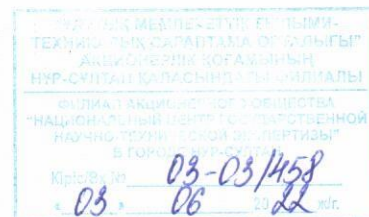 "ҰЛТТЫҚ МЕМЛЕКЕТТІК ҒЫЛЫМИ-
ТЕХНИКАЛЫҚ САРАПТАМА ОРТАЛЫҒЫ"
АКЦИОНЕРЛІК ҚОҒАМЫНЫҢ
НУР-СУЛТАН ҚАЛАСЫНДАҒЫ ФИЛИАЛЫ
ФИЛИАЛ АКЦИОНЕРНОГО ОБЩЕСТВА
"НАЦИОНАЛЬНЫЙ ЦЕНТР ГОСУДАРСТВЕННОЙ
НАУЧНО-ТЕХНИЧЕСКОЙ ЭКСПЕРТИЗЫ"
В ГОРОДЕ НУР-СУЛТАН
Кіріс/Вх № 03-03/458
« 03 » 06 20 22 ж/г.